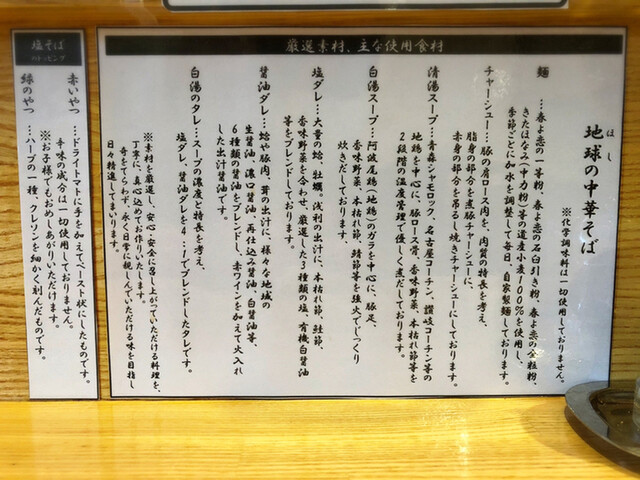 厳選素材、主な使用食材
地球の中華そば
ほし
※化学調味料は一切使用しておりません。
麺
…春よ恋の一等粉、春よ恋の石臼引き粉、春よ恋の全粒粉、
きたほなみ(中力粉)等の道産小麦100%を使用し、
季節ごとに加水を調整して毎日、自家製麺しております。
チャーシュー…豚の肩ロース肉を、肉質の特長を考え、
脂身の部分を煮豚チャーシューに、
赤身の部分を吊るし焼きチャーシューにしております。
清湯スープ…青森シャモロック、名古屋コーチン、讃岐コーチン等の
地鶏を中心に、豚ロース骨、香味野菜、本枯れ節等を
2段階の温度管理で優しく煮だしております。
白湯スープ…阿波尾鶏(地鶏)のガラを中心に、豚足、
香味野菜、本枯れ節、鯖節等を強火でじっくり
炊きだしております。
塩ダレ…大量の蛤、牡蠣、浅利の出汁に、本枯れ節、鮭節、
香味野菜等を合わせ、厳選した3種類の塩、有機白醤油
等をブレンドしております。
醤油ダレ…蛤や豚肉、茸の出汁に、様々な地域の
生醤油、濃口醤油、再仕込み醤油、白醤油等、
6種類の醤油をブレンドし、赤ワインを加えて火入れ
した出汁醤油です。
白湯のタレ…スープの濃度と特長を考え、
塩ダレ、醤油ダレを4:1でブレンドしたタレです。
※素材を厳選し、安心・安全に召し上がっていただける料理を、
丁寧に、真心込めてお作りいたします。
奇をてらわず、永く日常に親しんでいただける味を目指し
日々精進してまいります。
塩そば
のトッピング
赤いやつ
…ドライトマトに手を加えてペースト状にしたものです。
辛味の成分は一切使用しておりません。
※お子様でもおめしあがりいただけます。
緑のやつ
…ハーブの一種、クレソンを細かく刻んだものです。